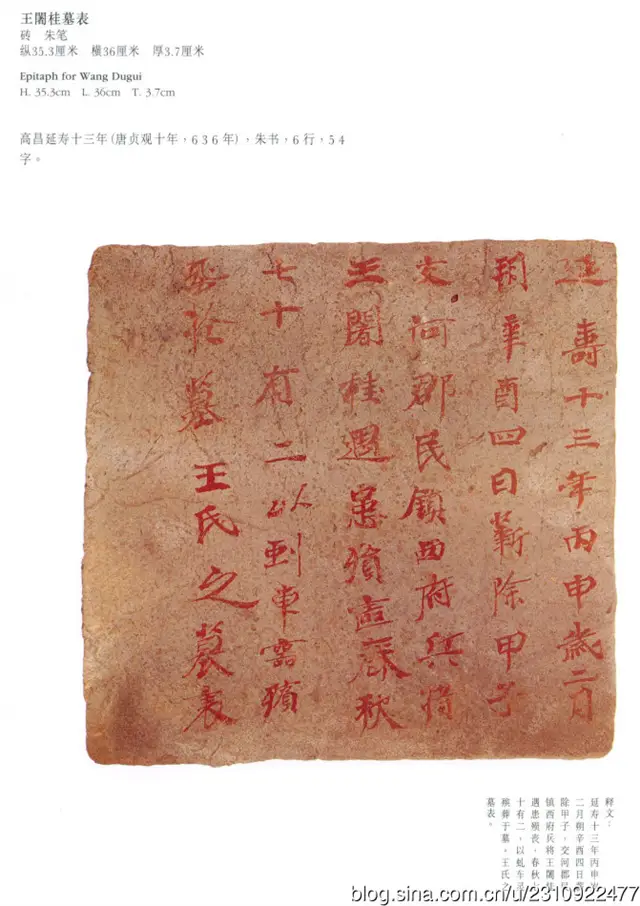 王闍桂墓表
砖 朱笔
纵35.3厘米 横36厘米 厚3.7厘米
Epitaph for Wang Dugui
H. 35.3cm L. 36cm T. 3.7cm
高昌延寿十三年(唐贞观十年，636年)，朱书，6行，54
字。
延壽十三年丙申歲二月
朔辛酉四日蕲除甲子
交河郡民鎮西府兵將
王闍桂遇患殞喪春秋
七十有二以虬車靈殯
墓王氏之墓表
释文：
延寿十三年丙申岁
二月朔辛酉四日
除甲子，交河郡民
镇西府兵将王闍桂
遇患殒丧，春秋七
十有二，以虬车灵
殡葬于墓。王氏之
墓表。
blog.sina.com.cn/u/2310922477